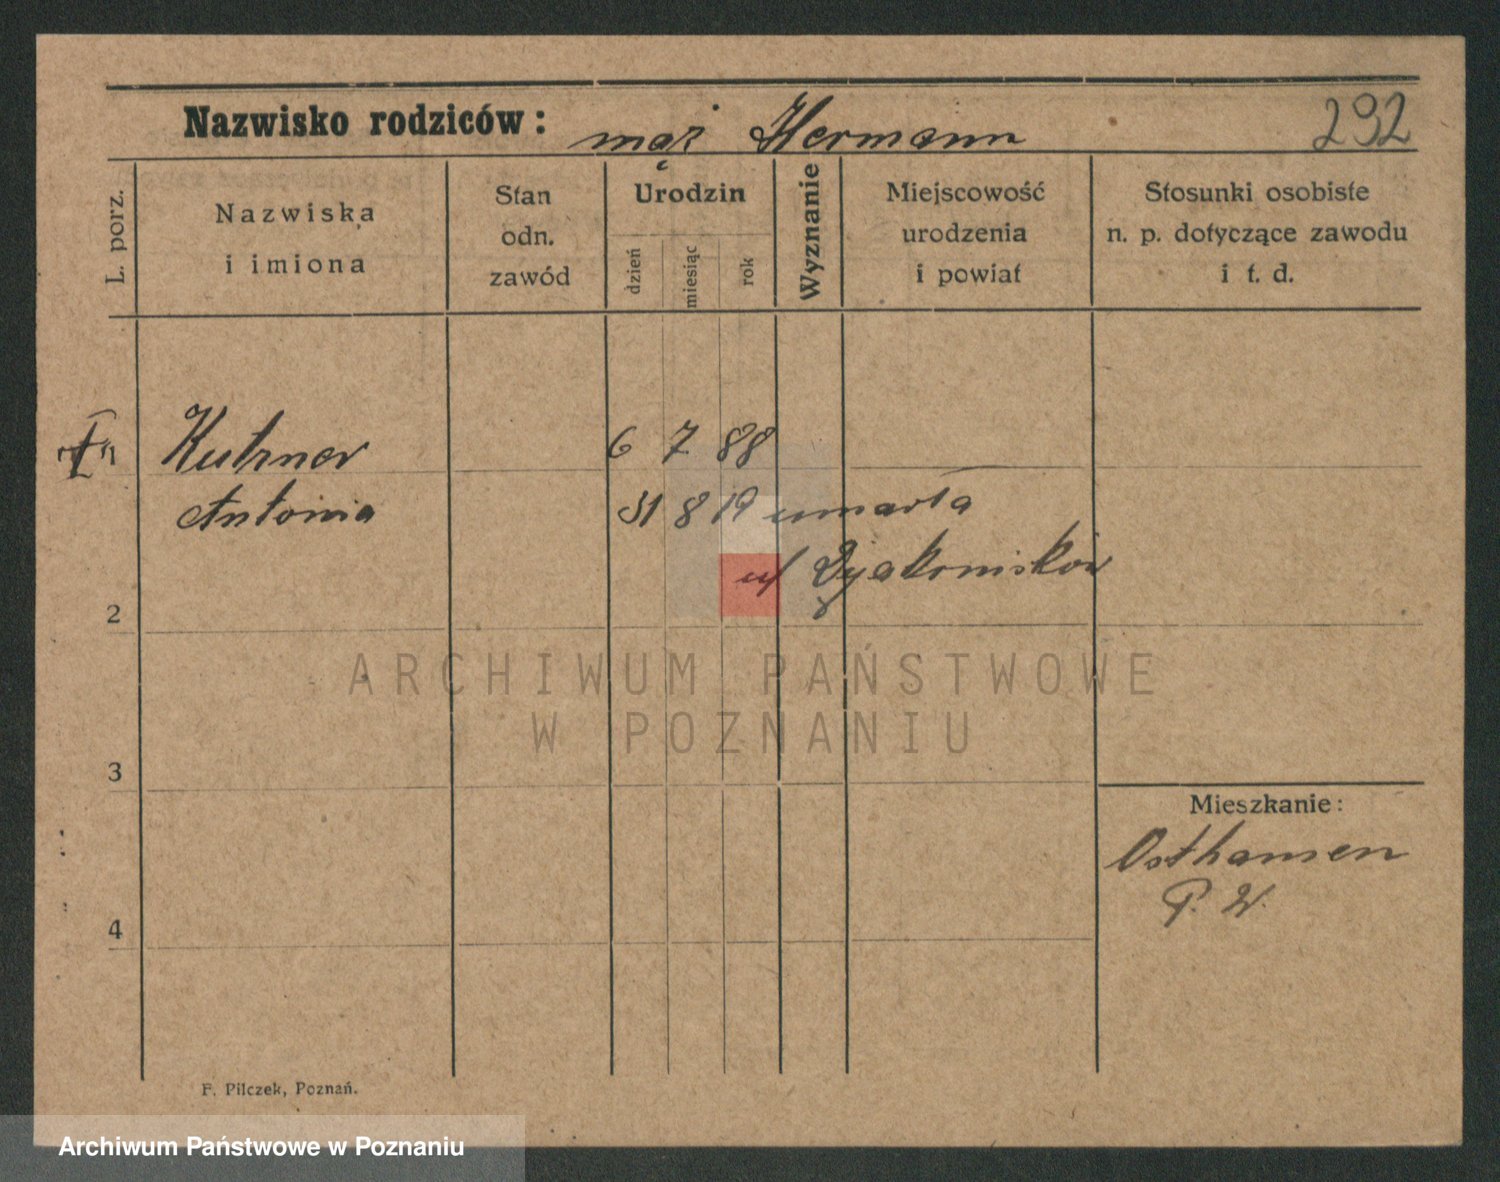 Nazwisko rodziców: mąż Hermann 292
L. porz.
Nazwiska
i imiona
Stan
odn.
zawód
Urodzin
dzień
miesiąc
rok
Wyznanie
Miejscowość
urodzenia
i powiat
Stosunki osobiste
n. p. dotyczące zawodu
i t. d.
1 Kutzner 6 7 88
Antonia 31 8 19 umarła
u/ Dyakonisków
2
ARCHIWUM PAŃSTWOWE
W POZNANIU
3
Mieszkanie:
Osthausen
P. W.
4
F. Pilczek, Poznań.
Archiwum Państwowe w Poznaniu